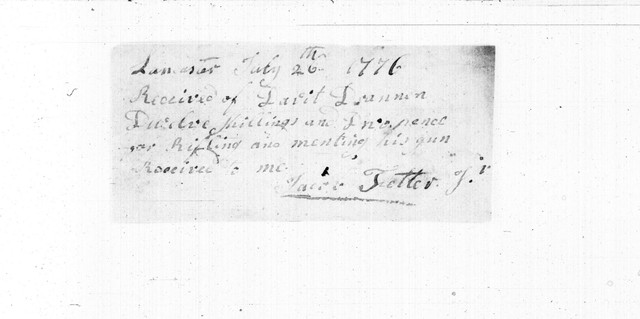 Lancaster July 26th 1776
Received of Davit Drannen
Dwelve shillings and Dwo pence
for Rifling and menting his gun
Received me
Trotter Jr